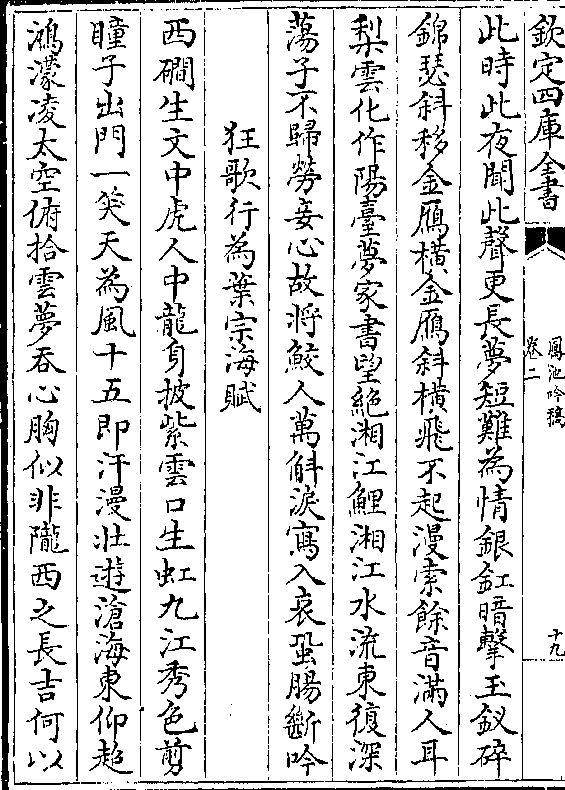 欽定四庫全書
鳳池吟稿
卷二
十九
此時此夜聞此聲更長夢短難為情銀缸暗擊玉釵碎
錦瑟斜移金鴈橫金鴈斜橫飛不起漫索餘音滿人耳
梨雲化作陽臺夢家書望絶湘江鯉湘江水流東復深
蕩子不歸勞妾心故將鮫人萬斛淚寫入哀蛩腸斷吟
狂歌行為葉宗海賦
西磵生文中虎人中龍身披紫雲口生虹九江秀色剪
瞳子出門一笑天為風十五即汗漫壯遊滄海東仰超
鴻濛凌太空俯拾雲夢吞心胸似非隴西之長吉何以